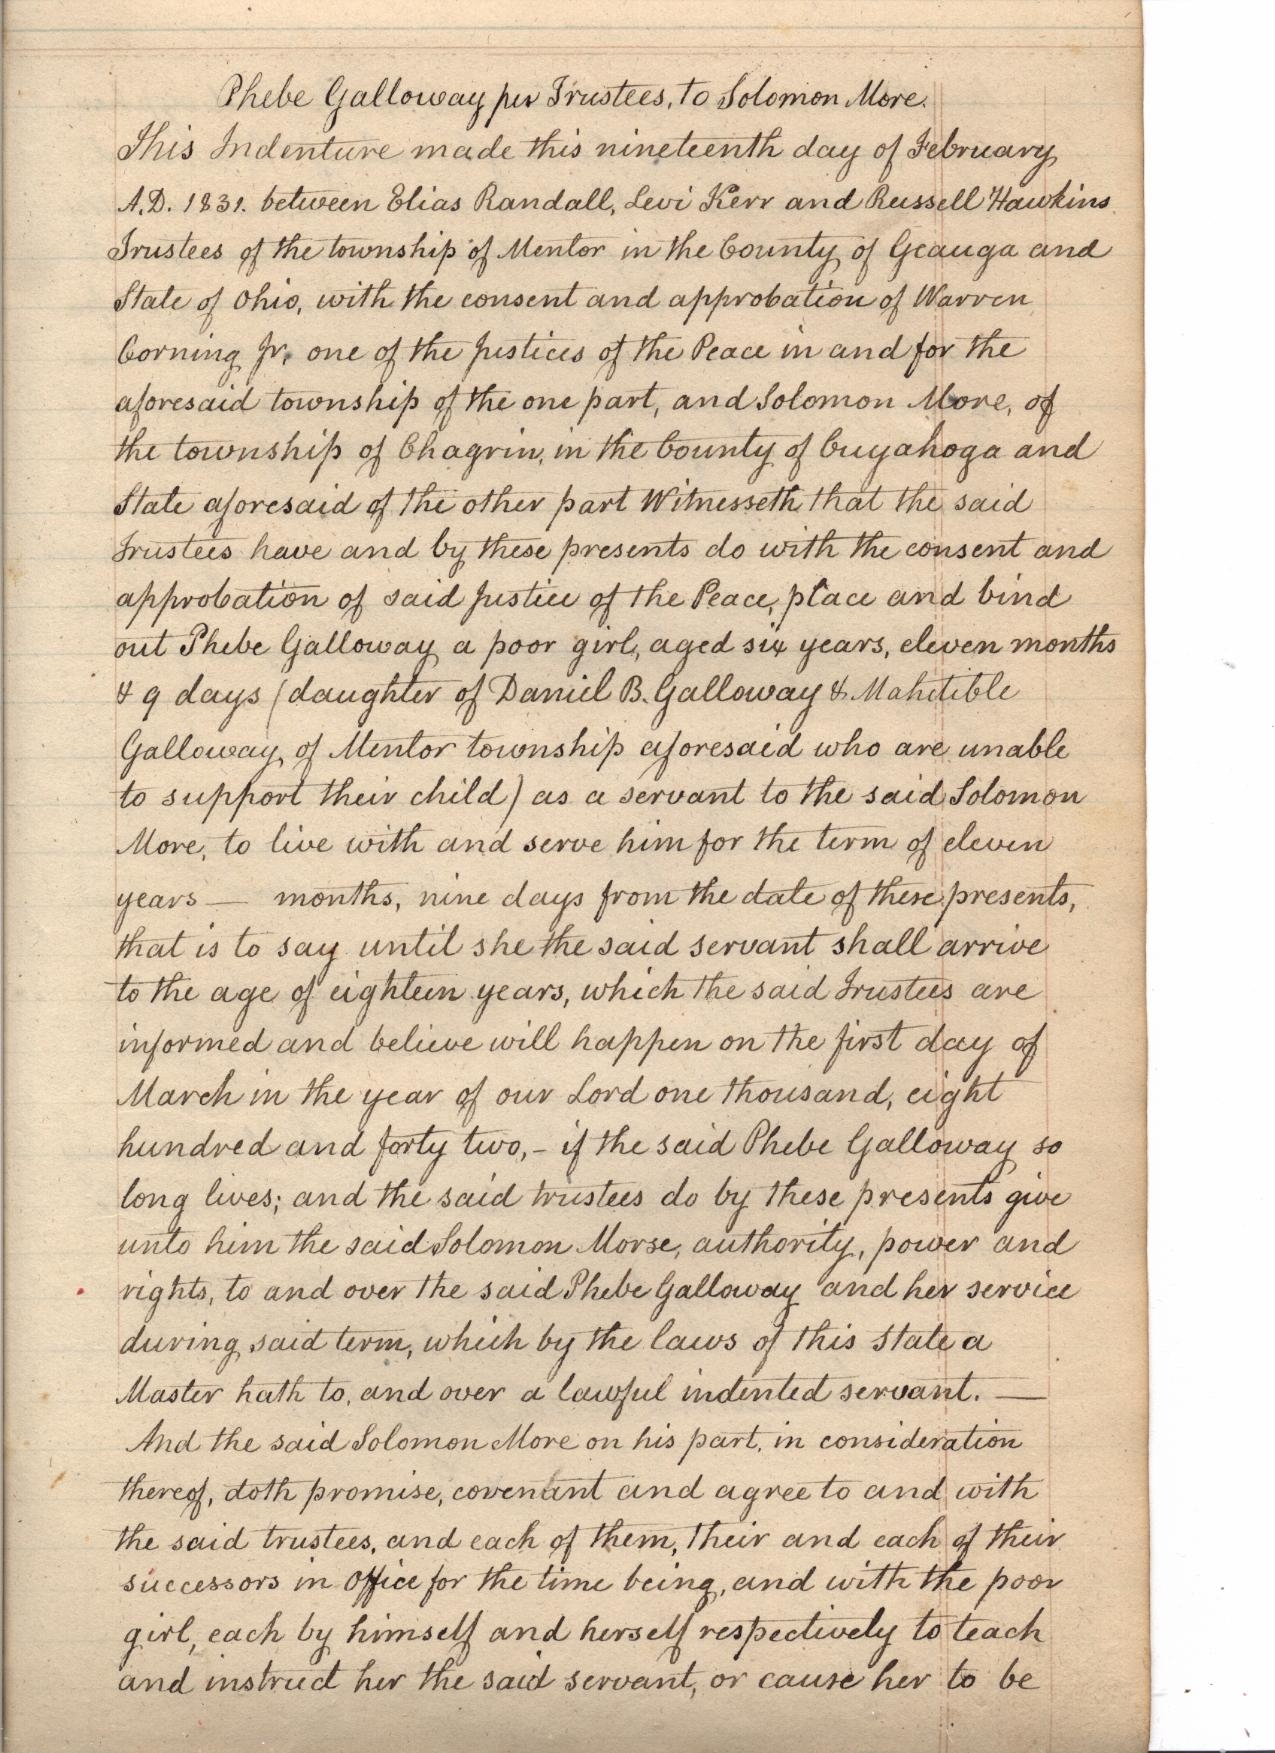 Phebe Galloway per Trustees, to Solomon More.
This Indenture made this nineteenth day of February
A.D. 1831. between Elias Randall, Levi Kerr and Russell Hawkins
Trustees of the township of Mentor in the County of Geauga and
State of Ohio, with the consent and approbation of Warren
Corning Jr. one of the Justices of the Peace in and for the
aforesaid township of the one part, and Solomon More, of
the township of Chagrin, in the County of Cuyahoga and
State aforesaid of the other part Witnesseth that the said
trustees have and by these presents do with the consent and
approbation of said Justice of the Peace, place and bind
out Phebe Galloway a poor girl, aged six years, eleven months
& 9 days (daughter of Daniel B. Galloway & Mahitible
Galloway, of Mentor township aforesaid who are unable
to support their child) as a servant to the said Solomon
More, to live with and serve him for the term of eleven
years — months, nine days from the date of these presents,
that is to say until she the said servant shall arrive
to the age of eighteen years, which the said Trustees are
informed and believe will happen on the first day of
March in the year of our Lord one thousand, eight
hundred and forty two, - if the said Phebe Galloway so
long lives; and the said trustees do by these presents give
unto him the said Solomon Morse, authority, power and
rights, to and over the said Phebe Galloway and her service
during said term, which by the laws of this State a
Master hath to, and over a lawful indented servant. —
And the said Solomon More on his part, in consideration
thereof, doth promise, covenant and agree to and with
the said trustees, and each of them, their and each of their
successors in office for the time being, and with the poor
girl, each by himself and herself respectively to teach
and instruct her the said servant, or cause her to be